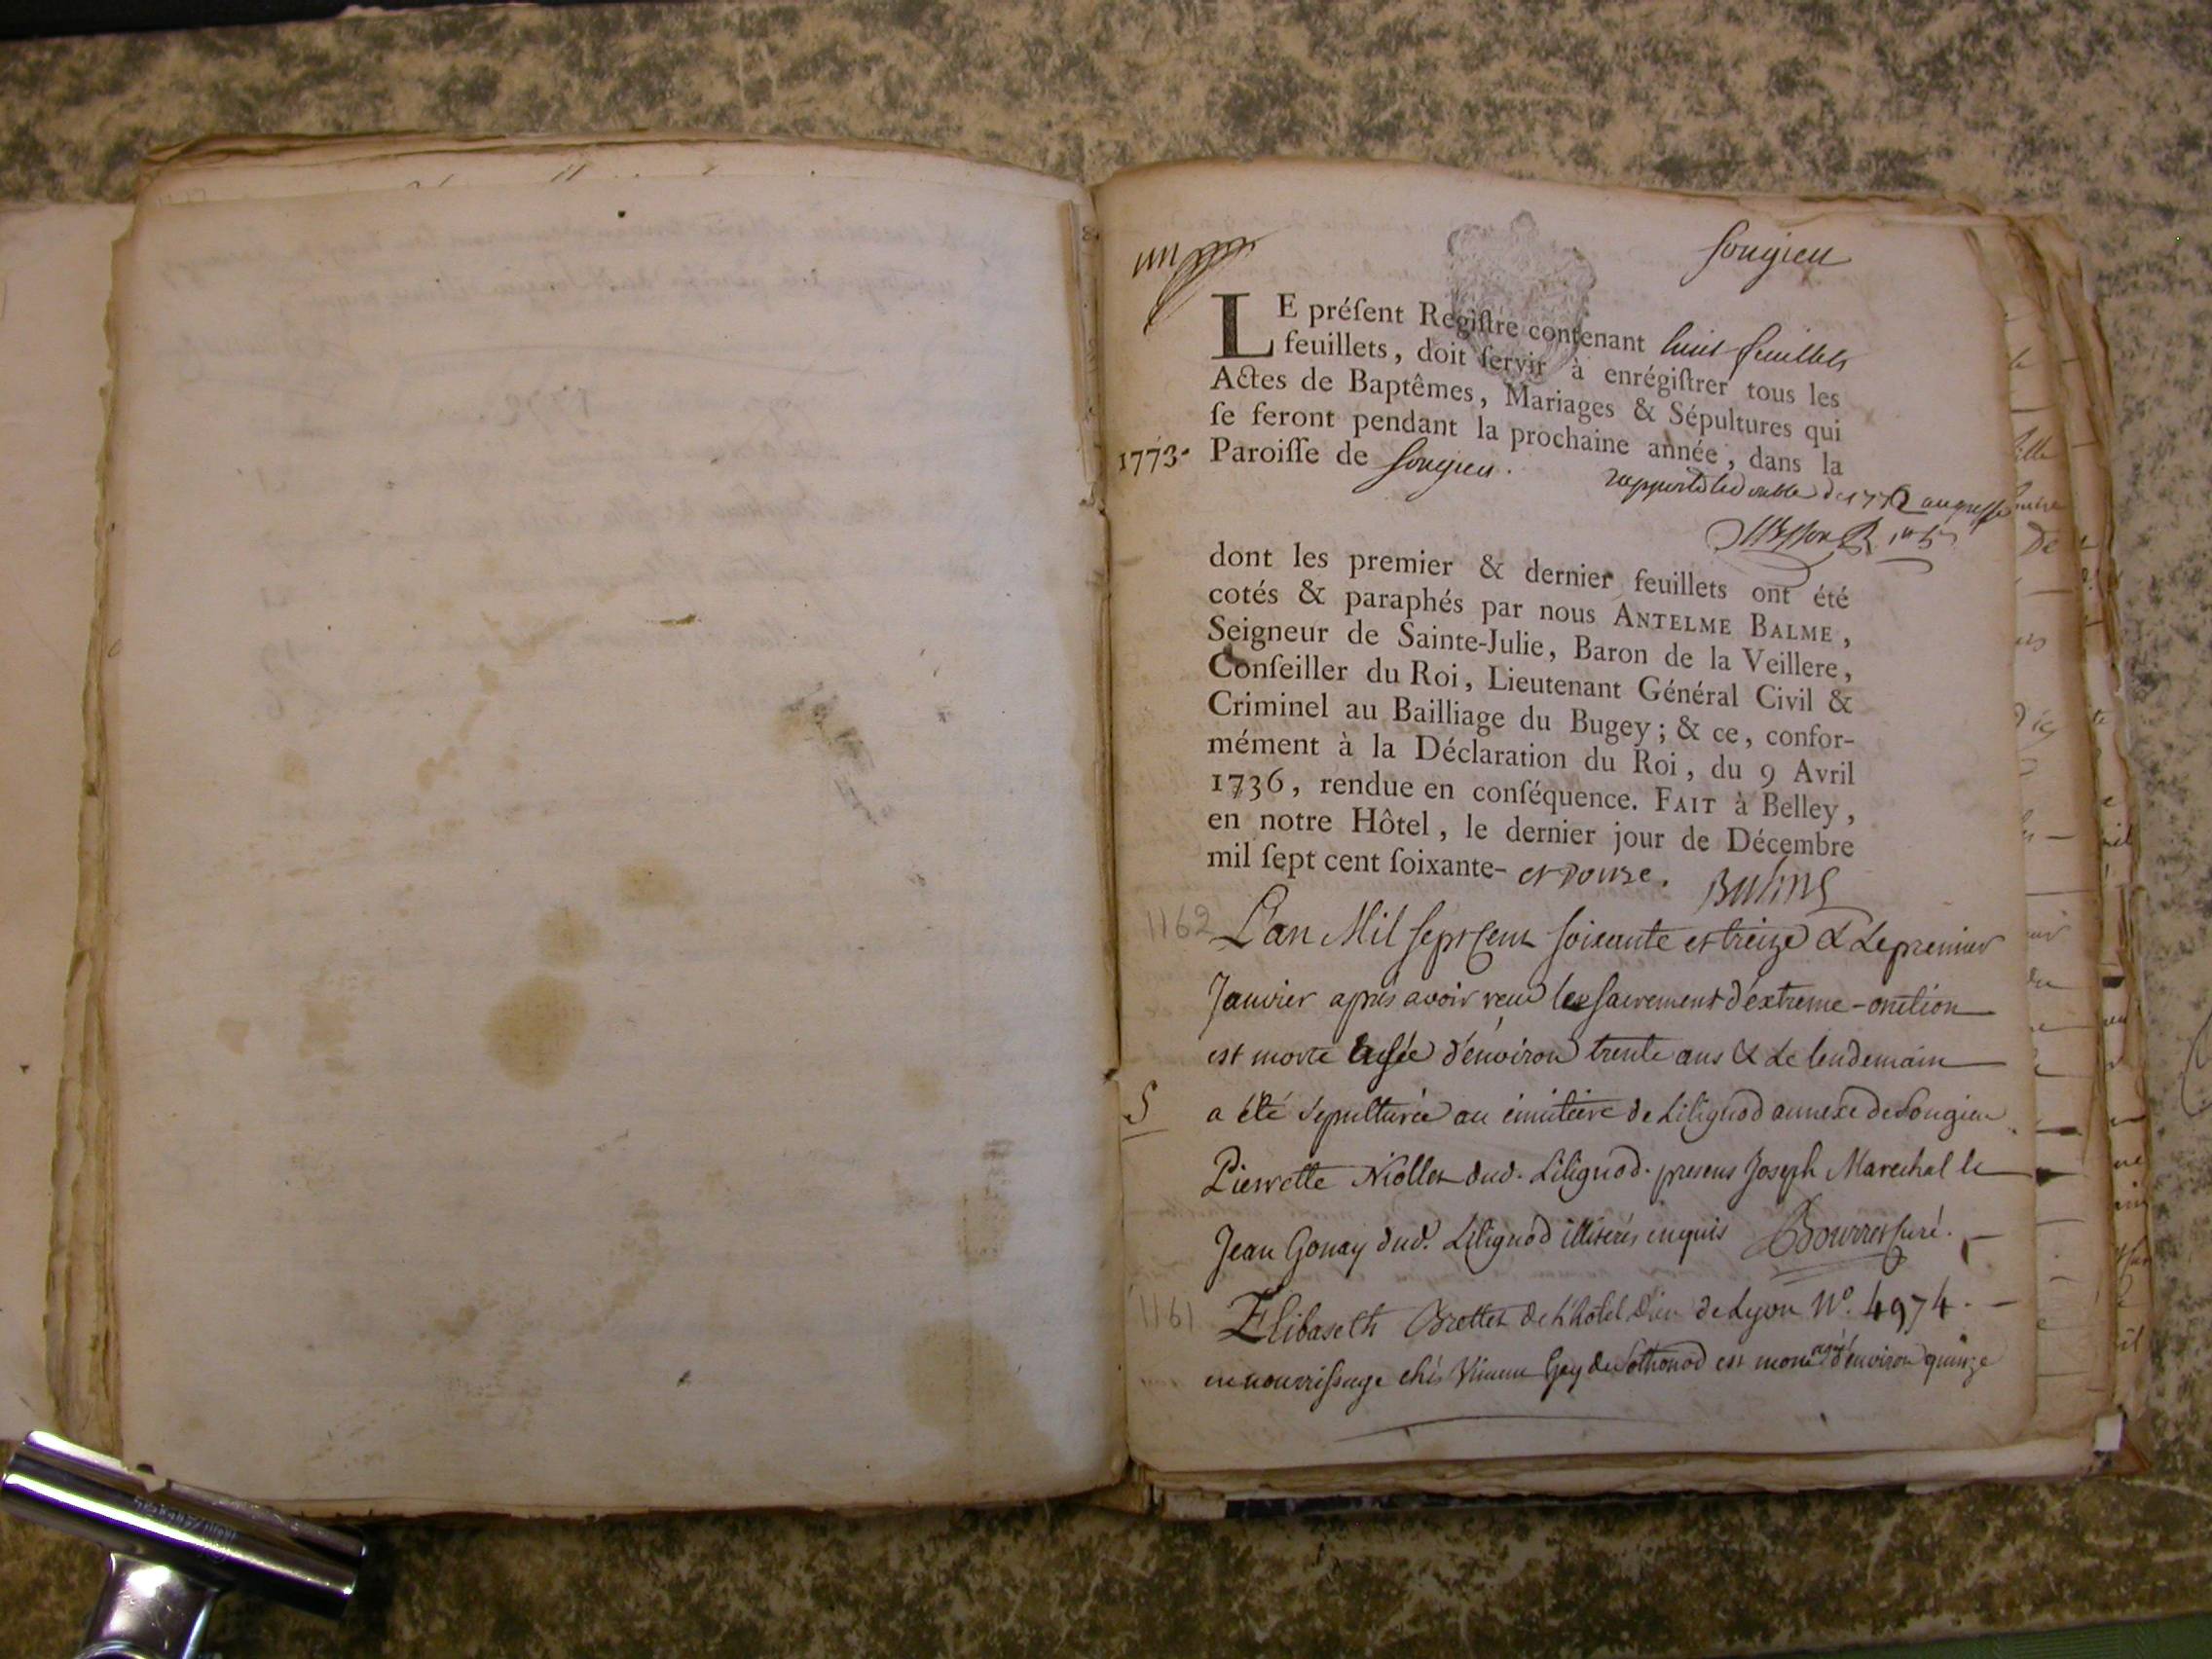 Songieu
LE préſent Regiſtre contenant huit feuillets
feuillets, doit ſervir à enrégiſtrer tous les
Actes de Baptêmes, Mariages & Sépultures qui
ſe feront pendant la prochaine année, dans la
1773. Paroiſſe de Songieu.
rapporté le double de 1772 au greffe
dont les premier & dernier feuillets ont été
cotés & paraphés par nous ANTELME BALME,
Seigneur de Sainte-Julie, Baron de la Veillere,
Conſeiller du Roi, Lieutenant Général Civil &
Criminel au Bailliage du Bugey; & ce, confor-
mément à la Déclaration du Roi, du 9 Avril
1736, rendue en conſéquence. FAIT à Belley,
en notre Hôtel, le dernier jour de Décembre
mil ſept cent ſoixante- et douze. Balme
1162 L'an Mil sept cent soixante et treize & le premier
Janvier après avoir receu les sacrement d'extreme-onction
est morte agée d'environ trente ans & le lendemain
S a été sepulturée au cimitière de Lilignod annexe de Songieu
Pierrette Niollet dud. Lilignod. presens Joseph Marechal le
Jean Gonay dud. Lilignod illiterés enquis Bourret curé.
1161 Elibaseth Brottet de L'hotel Dieu de Lyon N.º 4974.
en nourrissage chés Vincent Gey de Sothonod est morte agée d'environ quinze